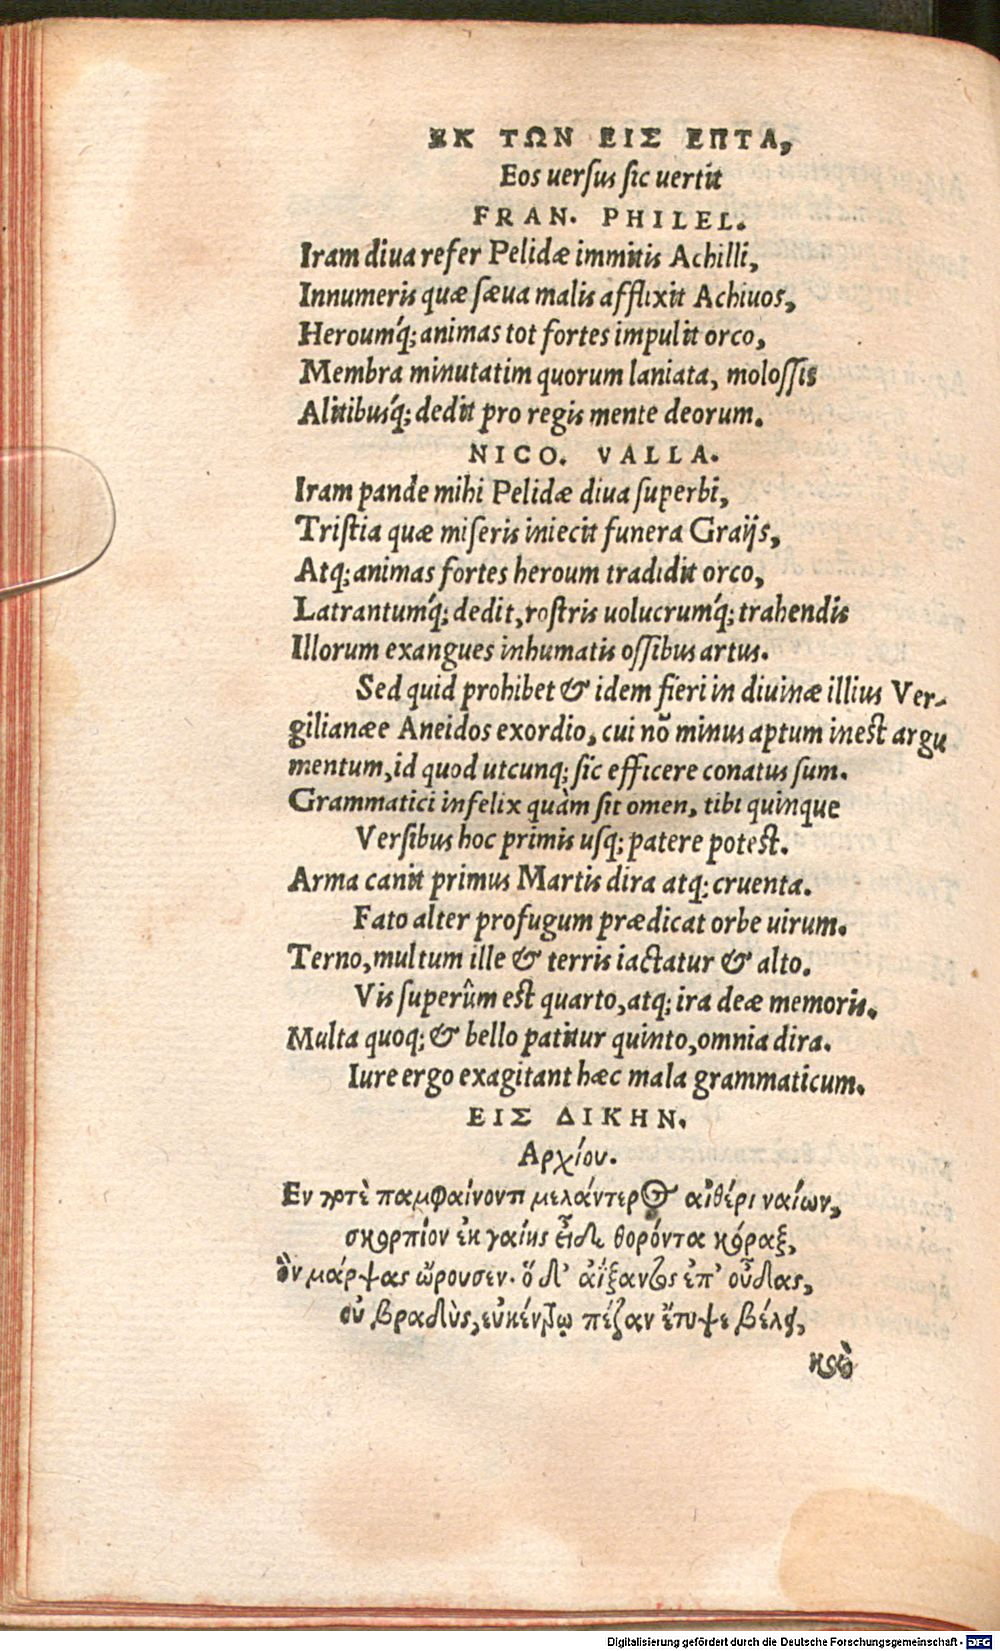 ΕΚ ΤΩΝ ΕΙΣ ΕΠΤΑ,
Eos uersus sic uertit
FRAN. PHILEL.
Iram diua refer Pelidæ immitis Achilli,
Innumeris quæ sæua malis afflixit Achiuos,
Heroumq́; animas tot fortes impulit orco,
Membra minutatim quorum laniata, molossis
Alitibusq́; dedit pro regis mente deorum.
NICO. VALLA.
Iram pande mihi Pelidæ diua superbi,
Tristia quæ miseris iniecit funera Graijs,
Atq; animas fortes heroum tradidit orco,
Latrantumq́; dedit, rostris uolucrumq́; trahendis
Illorum exangues inhumatis ossibus artus.
Sed quid prohibet & idem fieri in diuinæ illius Ver-
gilianæe Aneidos exordio, cui nō minus aptum inest argu
mentum, id quod utcunq; sic efficere conatus sum.
Grammatici infelix quàm sit omen, tibi quinque
Versibus hoc primis usq; patere potest.
Arma canit primus Martis dira atq; cruenta.
Fato alter profugum prædicat orbe uirum.
Terno, multum ille & terris iactatur & alto.
Vis superûm est quarto, atq; ira deæ memoris.
Multa quoq; & bello patitur quinto, omnia dira.
Iure ergo exagitant hæc mala grammaticum.
ΕΙΣ ΔΙΚΗΝ.
Αρχίου.
Εν ποτὲ παμφαίνοντι μελάντερος αἰθέρι ναίων,
σκορπίον ἐκ γαίης εἶδε θορόντα κόραξ,
ὃν μάρψας ὤρουσεν· ὅ δ' ἀΐξαντος ἐπ' οὖδας,
οὐ βραδὺς, εὐκέντρῳ πέζαν ἔτυψε βέλει,
καὶ
Digitalisierung gefördert durch die Deutsche Forschungsgemeinschaft - DFG